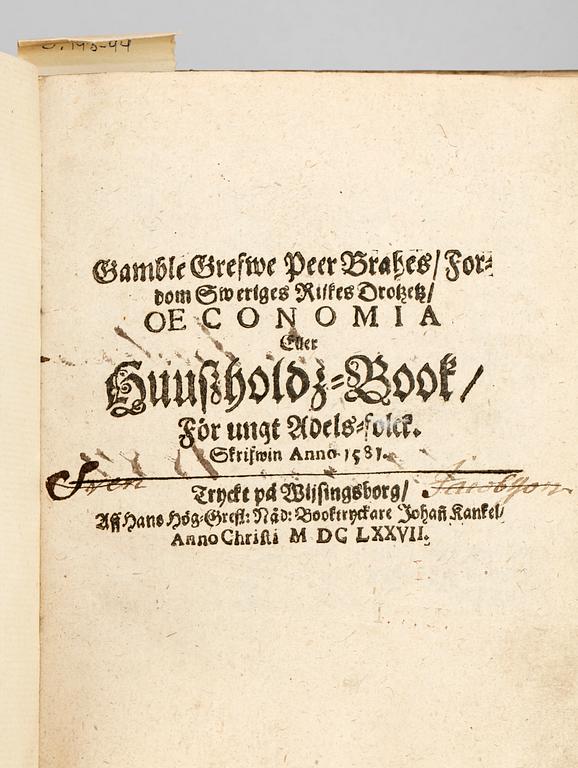 Gamble Grefwe Peer Brahes/ For-
dom Sweriges Rijkes Drotzetz/
OECONOMIA
Eller
Huußholdz-Book/
För ungt Adels-folck.
Skrifwin Anno 1581.
Sven Jacobsson
Tryckt på Wijsingsborg/
Aff Hans Hög-Grefl: Nåd: Booktryckare Johan Kankel/
Anno Christi M DC LXXVII.